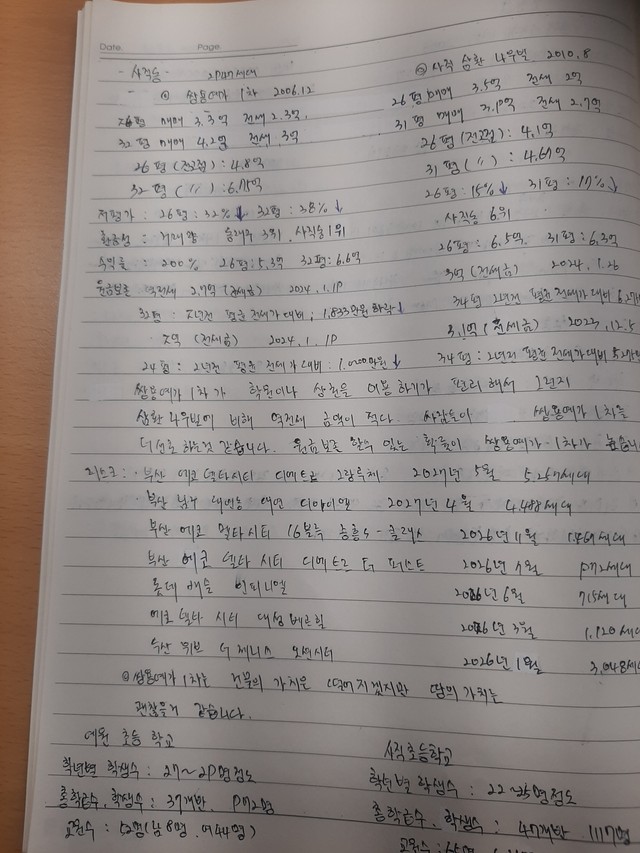 Date. Page.
- 사직동 -
① 쌍용예가 1차 2006.12
26평 매매 3.3억 전세 2.3억.
32평 매매 4.2억 전세 3억
26평 (전고점) : 4.8억
32평 ( 〃 ) : 6.75억
저평가 : 26평 : 32%↓ 32평 : 38%↓
환금성 : 거래량 3위. 사직동 1위
수익률 : 200% 26평 : 5.3억 32평 : 6.6억
원금보존 역전세 2.7억 (전세금) 2024.1.19
32평 : 2년전 평균 전세가 대비 : 1,833만원 하락↓
2억 (전세금) 2024.1.19
24평 : 2년전 평균 전세가 대비 : ↓
쌍용예가 1차가 학원이나 상권을 이용하기가 편리해서 인지
삼환 나우빌에 비해 역전세 금액이 적다. 사람들이 쌍용예가 1차를
더 선호하는것 같습니다. 원금보존 할수 있는 확률이 쌍용예가 1차가
리스크 : · 부산 에코델타시티 디에트르 그랑루체 2027년 5월 5.267세대
· 부산 남구 대연동 대연 디아이엘 2027년 4월 4.488세대
부산 에코 델타시티 16블록 2026년 11월
부산 에코 델타 시티 디에트르 더 퍼스트 2026년 972세대
롯데캐슬 인피니엘 2026년 6월 715세대
에코델타 시티 대성베르힐 2026년 3월 1,120세대
두산위브 더 제니스 오션시티 2026년 1월 3,048세대
◎ 쌍용예가 1차는 건물의 가치은 떨어지겠지만 땅의 가치는
괜찮을거 같습니다.
② 사직 삼환 나우빌 2010.8
26평 매매 3.5억 전세 2억
31평 매매 3.9억 전세 2.7억
26평 (전고점) : 4.1억
31평 ( 〃 ) : 4.67억
26평 : 15%↓ 31평 : 17%↓
사직동 6위
26평 : 6.5억 31평 : 6.3억
3억 (전세금) 2024.1.26
34평 2년전 평균 전세가 대비
3.1억 (전세금) 2023.12.
34평 : 2년전 평균 전세가 대비
예원 초등 학교
학년별 학생수 : 27~29명정도
총학급수, 학생수 : 37개반. 972명
교원수 : 52명 (남 8명, 여 44명)
사직초등학교
학년별 학생수 : 22~25명 정도
총 학급수, 학생수 : 47개반. 1117명
교원수 : 65명